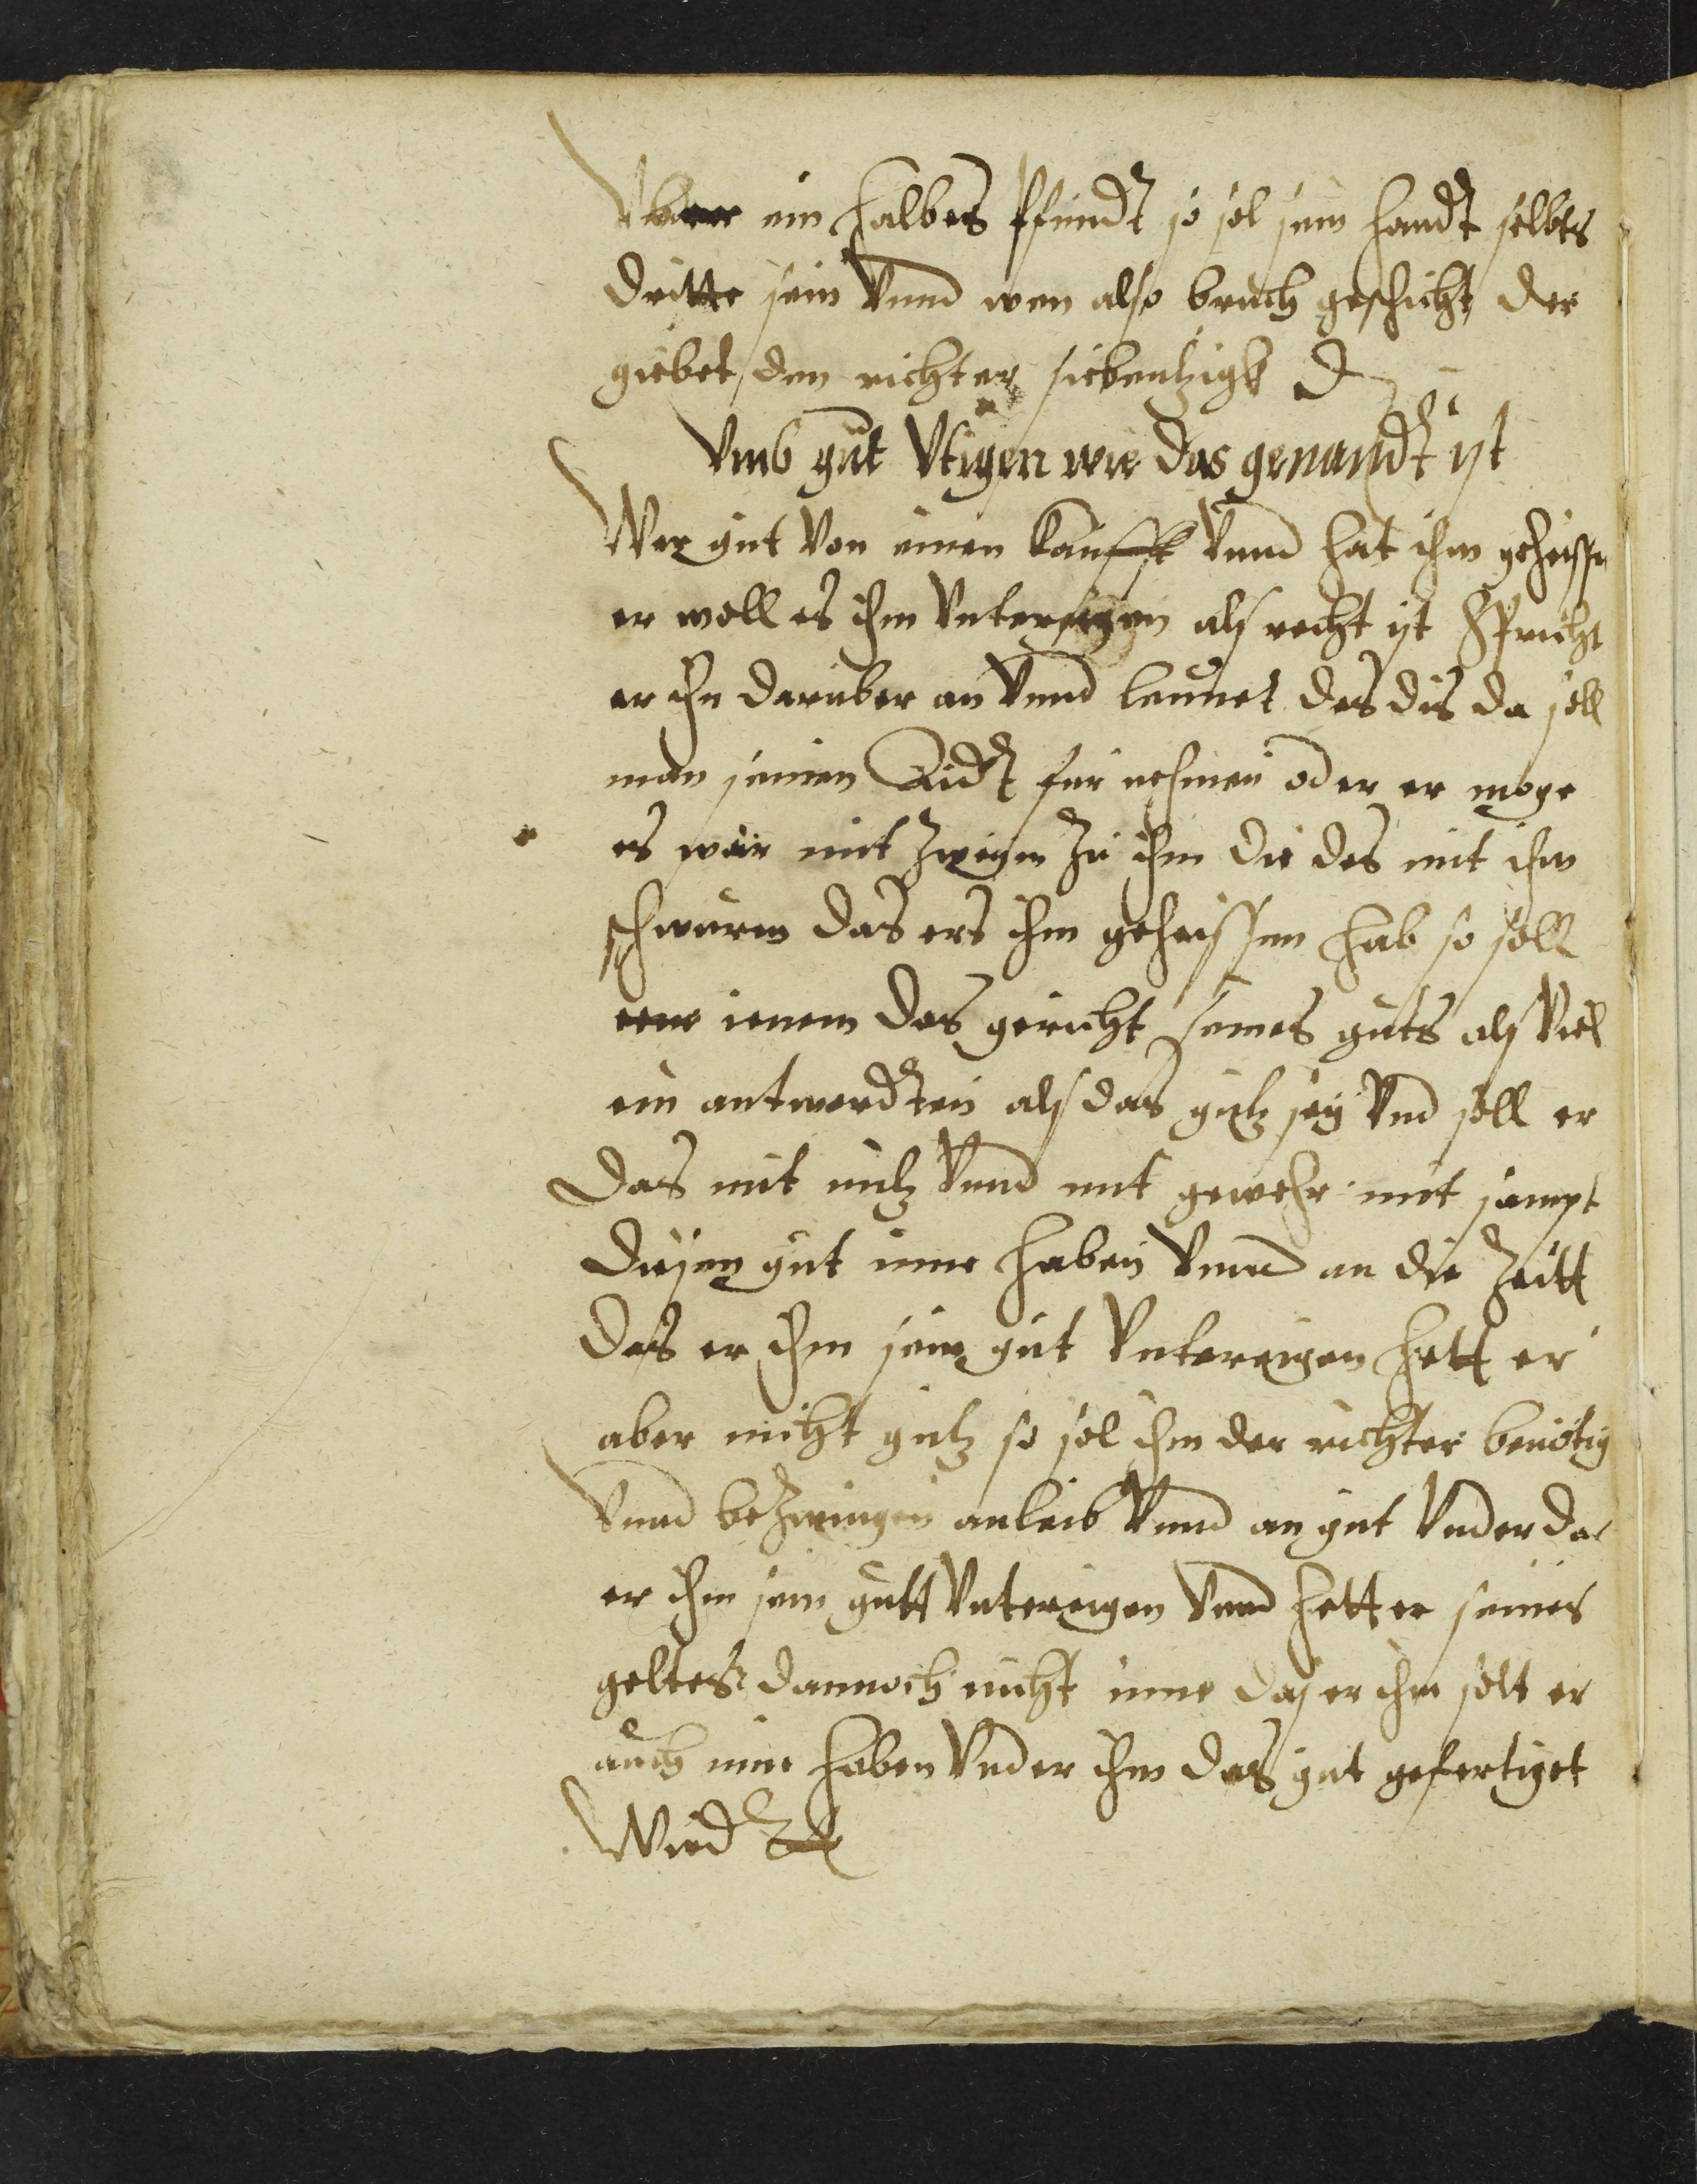 Vber ein halbes Pfundt so sol sein handt selbts
dritte sein Vnnd wen also bruch geschicht der
giebet den richter siebentzigk d
Vmb gut Vtigen wie das genandt ist
Wer gut Von einen kaufft Vnnd hat ihm geheissn
er woll es ihm Vntereigen als recht ist Spricht
er ihn daruber an Vnnd leunet des dis da soll
man seinen Aidt fur nehmen oder er moge
es war mit zweyen zu ihm die des mit ihm
schwuren das ers ihm geheissen hab so soll
ienem das gericht seines guts als Viel
ein antwordten als das gulz sey Vnd soll er
das mit nulz Vnnd mit gewehr mit sampt
diesen gut inne haben Vnnd an die Zeitt
das er ihm sein gut Vntereigen hett er
aber nicht gulz so sol ihm der richter benötig
Vnnd bezwingen an leib Vnnd an gut Vnder das
er ihm sein gutt Vntereigen Vnnd hett er seines
geltes dannoch nicht inne das er ihm solt er
auch inne haben Vnder ihm das gut gefertiget
Wird